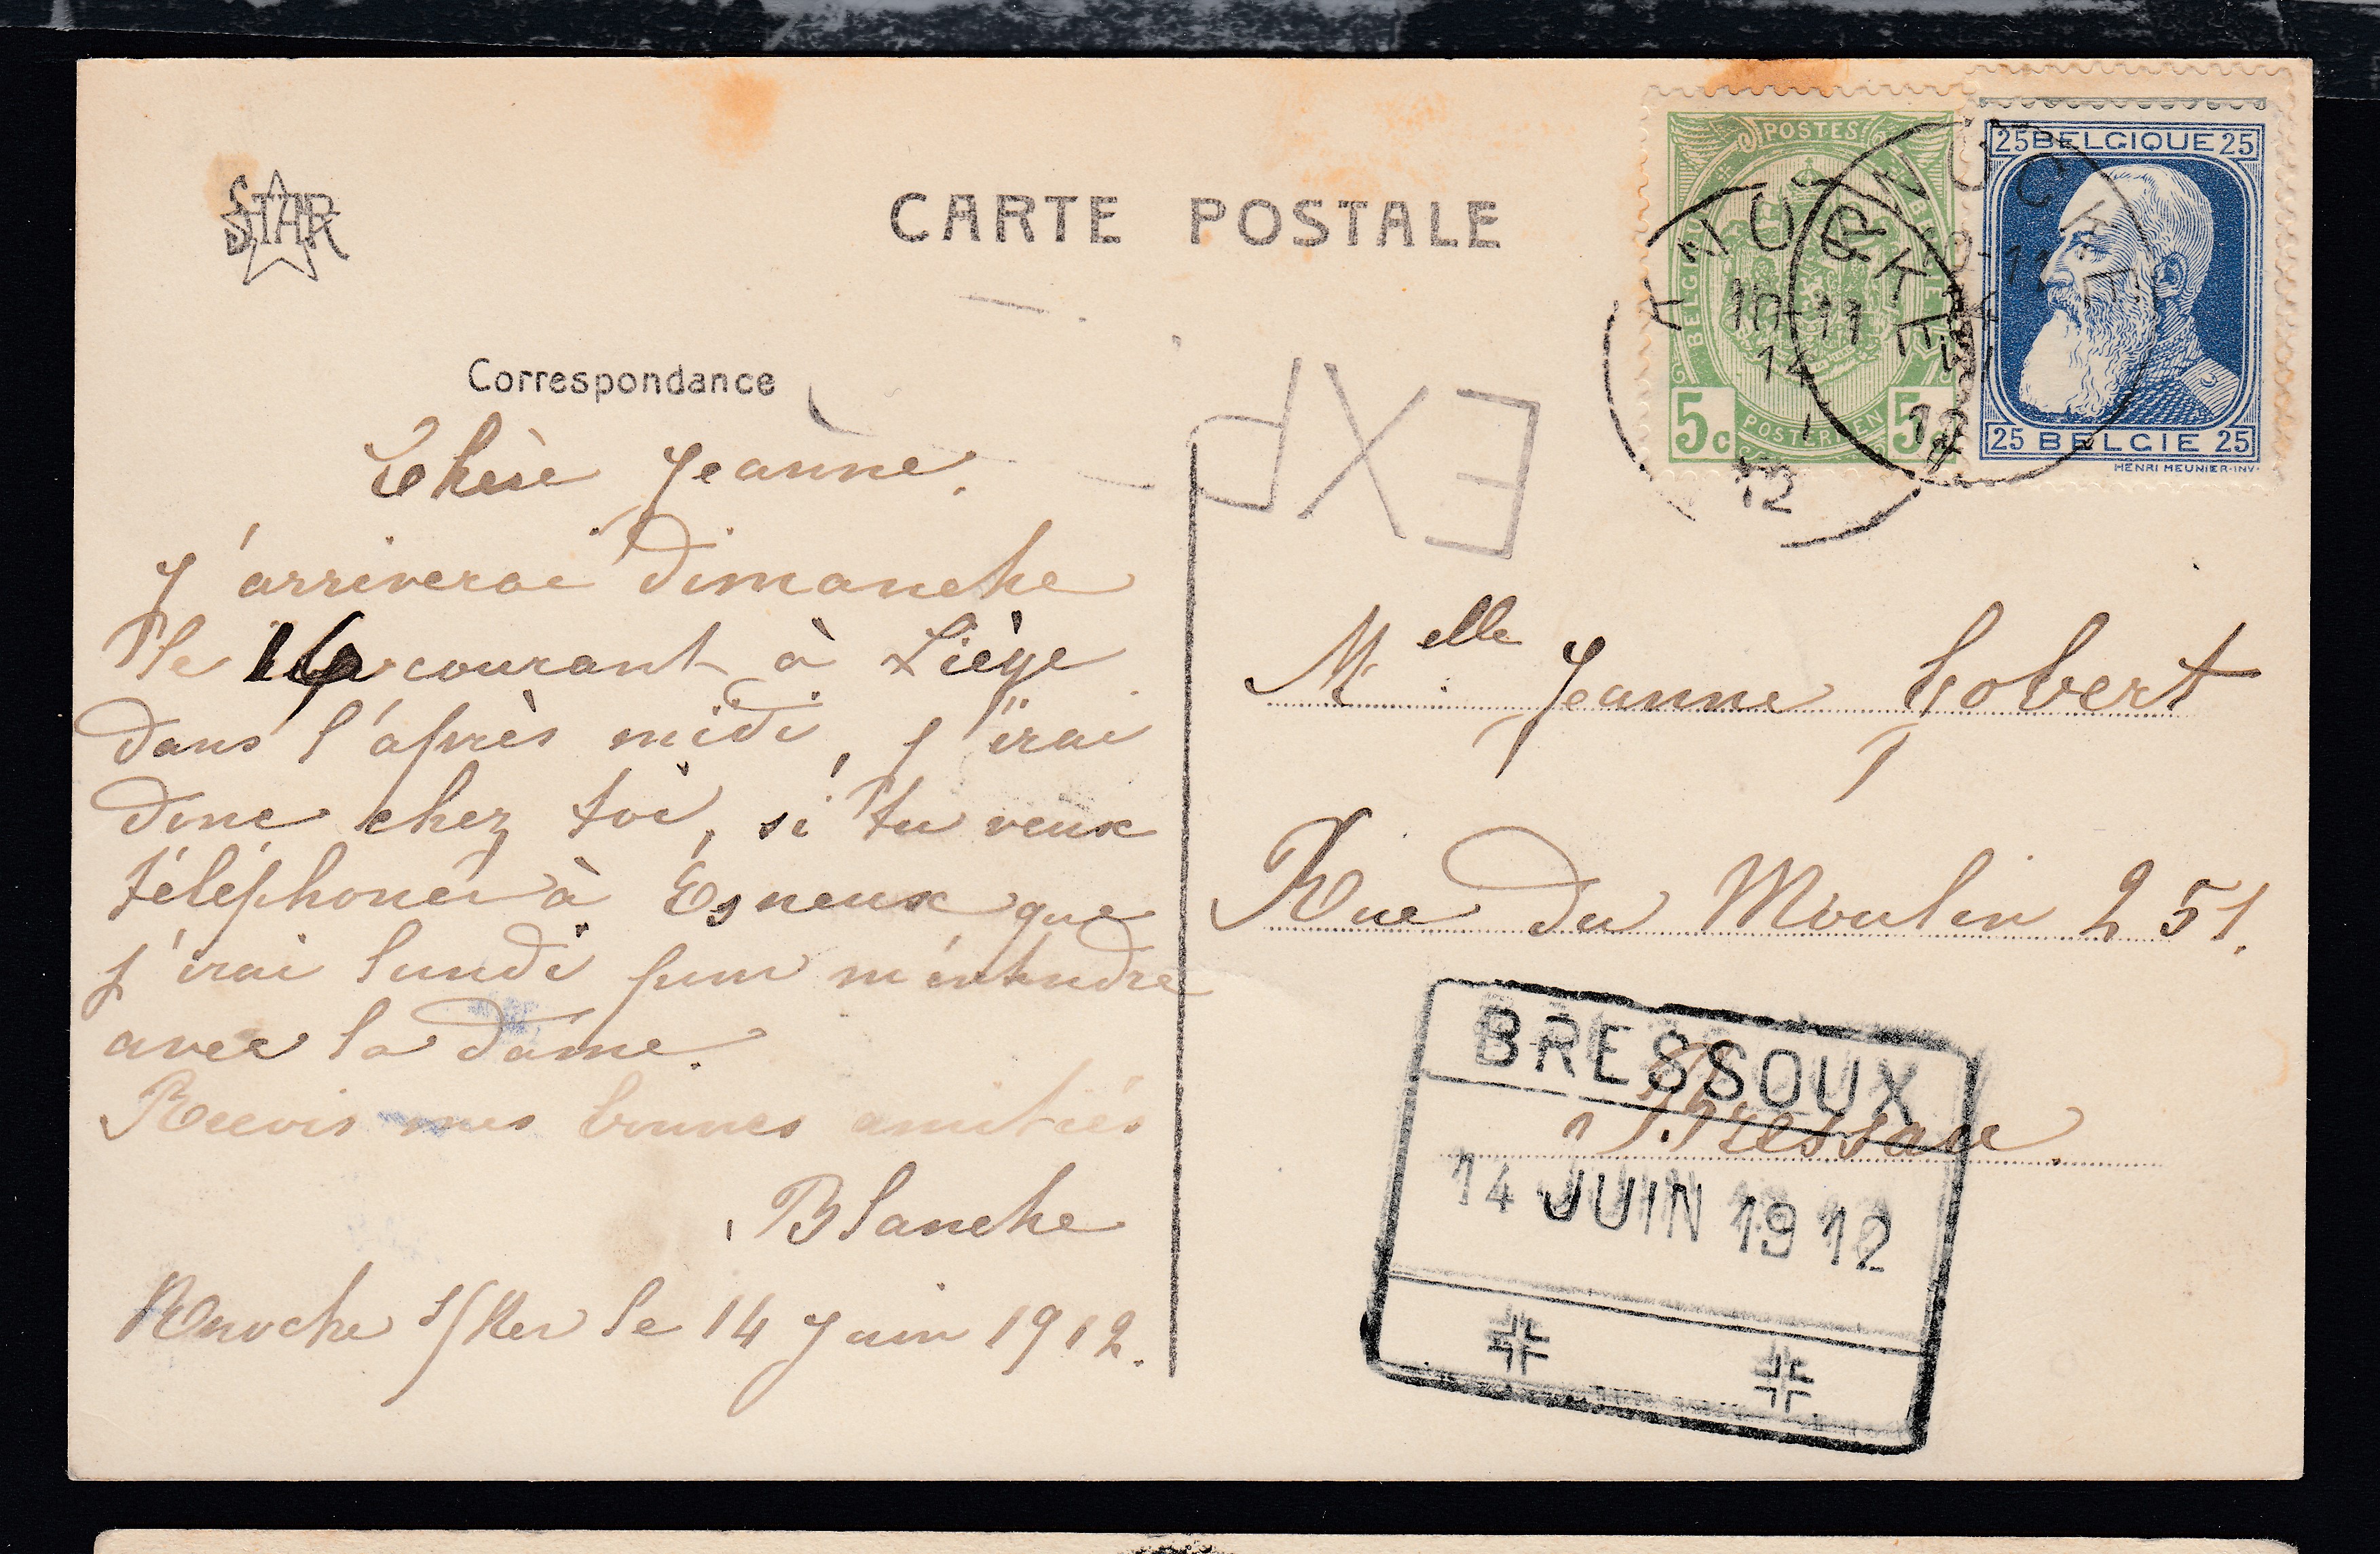 STAR
CARTE POSTALE
POSTES
BELGIQUE
BELGIE
POSTERIJEN
5c 5c
25 BELGIQUE 25
25 BELGIE 25
HENRI MEUNIER·INV·
KNOCKE
10-11
14
12
KNOCKE
-11
12
EXP
Correspondance
Chère Jeanne.
J'arriverai dimanche
le 16 courant à Liège
dans l'après midi, j'irai
donc chez toi, si tu veux
téléphoner à Esneux que
j'irai lundi pour m'entendre
avec la dame.
Reçois mes bonnes amitiés
Blanche
le 14 Juin 1912.
Melle Jeanne Gobert
Rue du Moulin 251.
BRESSOUX
14 JUIN 1912